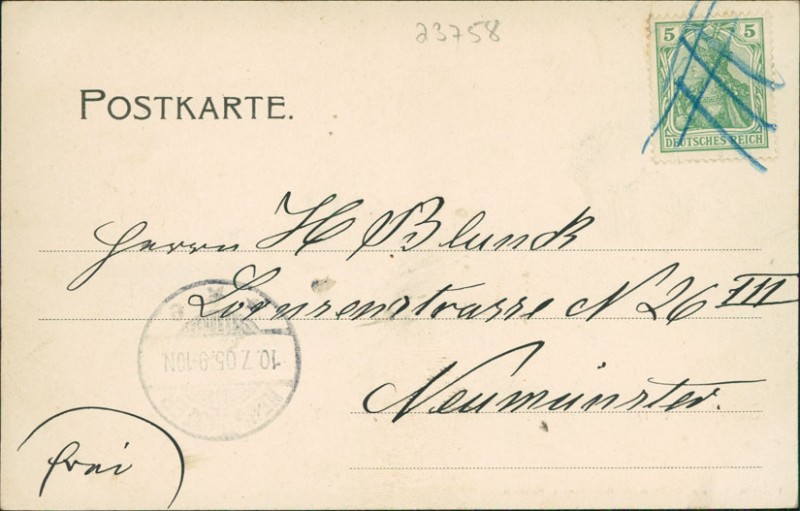 23758
5 5
DEUTSCHES REICH
POSTKARTE.
Herrn H Blunck
Lornsenstrasse N 26 III
Neumünster.
10.7.05.9-10N
frei